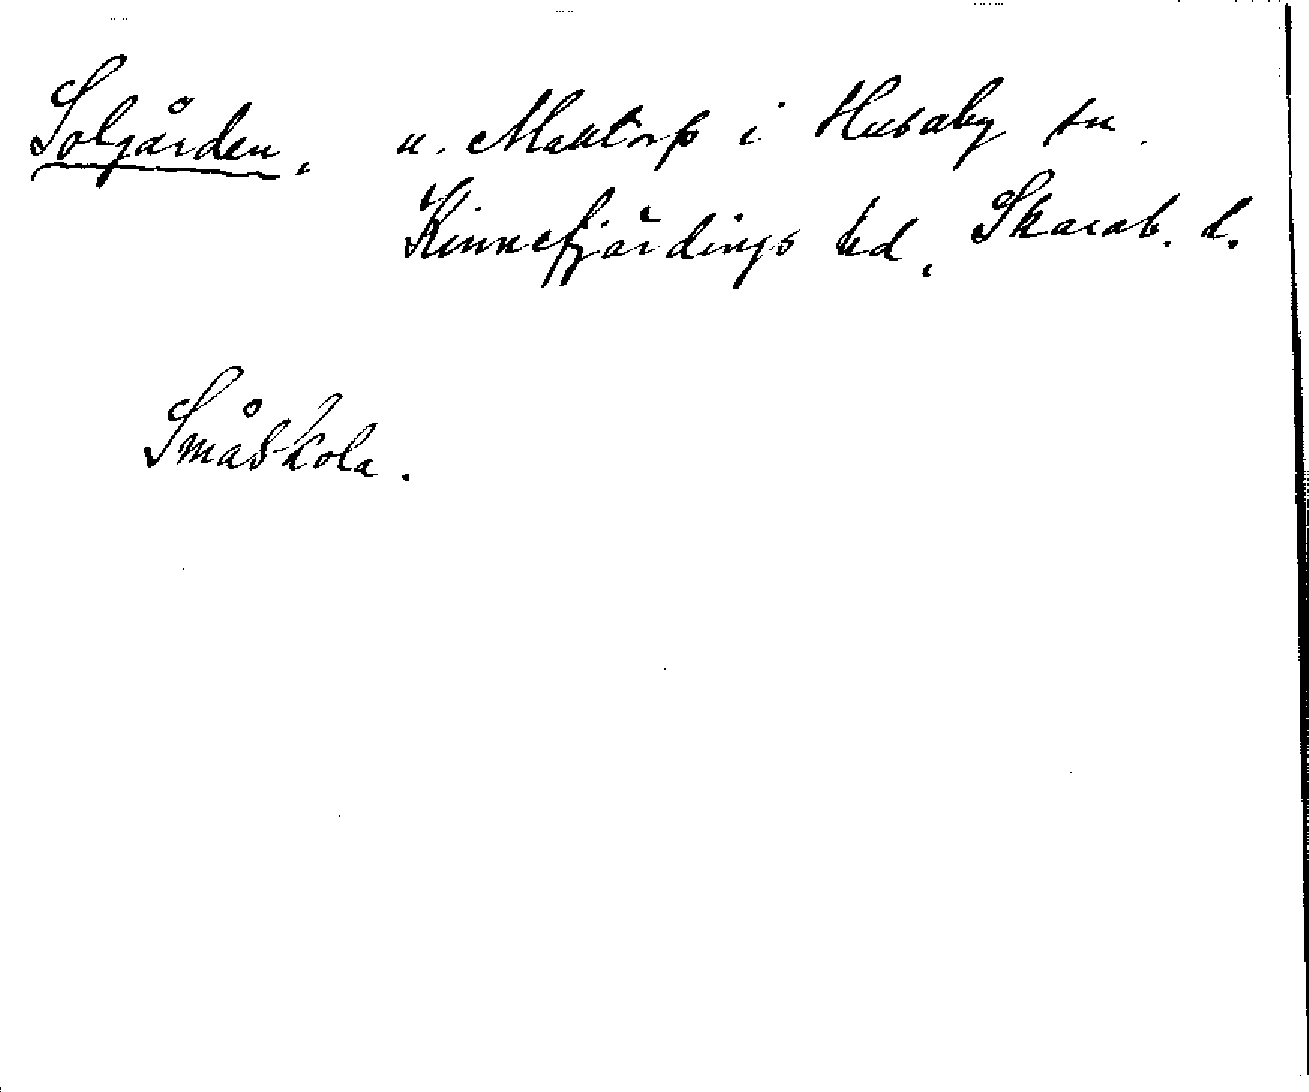 Solgården, u. Maktorp i Husaby sn.
Kinnefjärdings hd, Skarab. l.
Småskola.